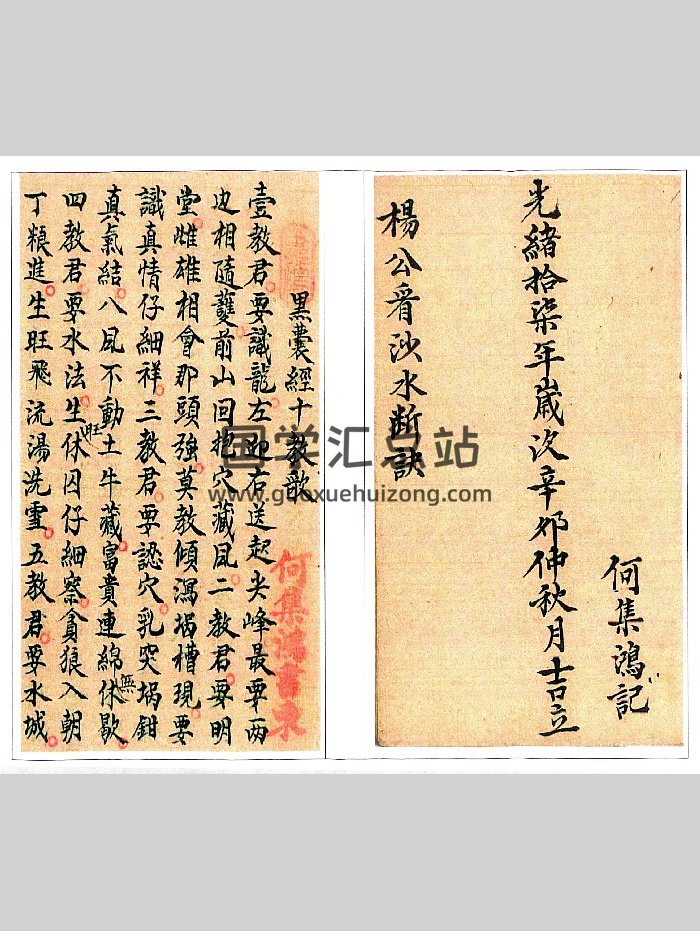 光緒拾柒年嵗次辛夘仲秋月吉立
何集鴻記
楊公看沙水斷訣
黑囊經十教歌
壹教君要識龍左迎右送起尖峰最要兩
边相隨護前山回抱穴藏風二教君要明
堂雌雄相會那頭強莫教傾瀉堝槽現要
識真情仔細祥三教君要認穴乳突堝鉗
真氣結八風不動土牛藏富貴連綿休無歇
四教君要水法生旺休囚仔細察貪狼入朝
丁粮進生旺飛流湯洗雪五教君要水城
何集鴻書柬
国学汇总站
www.guoxuehuizong.com